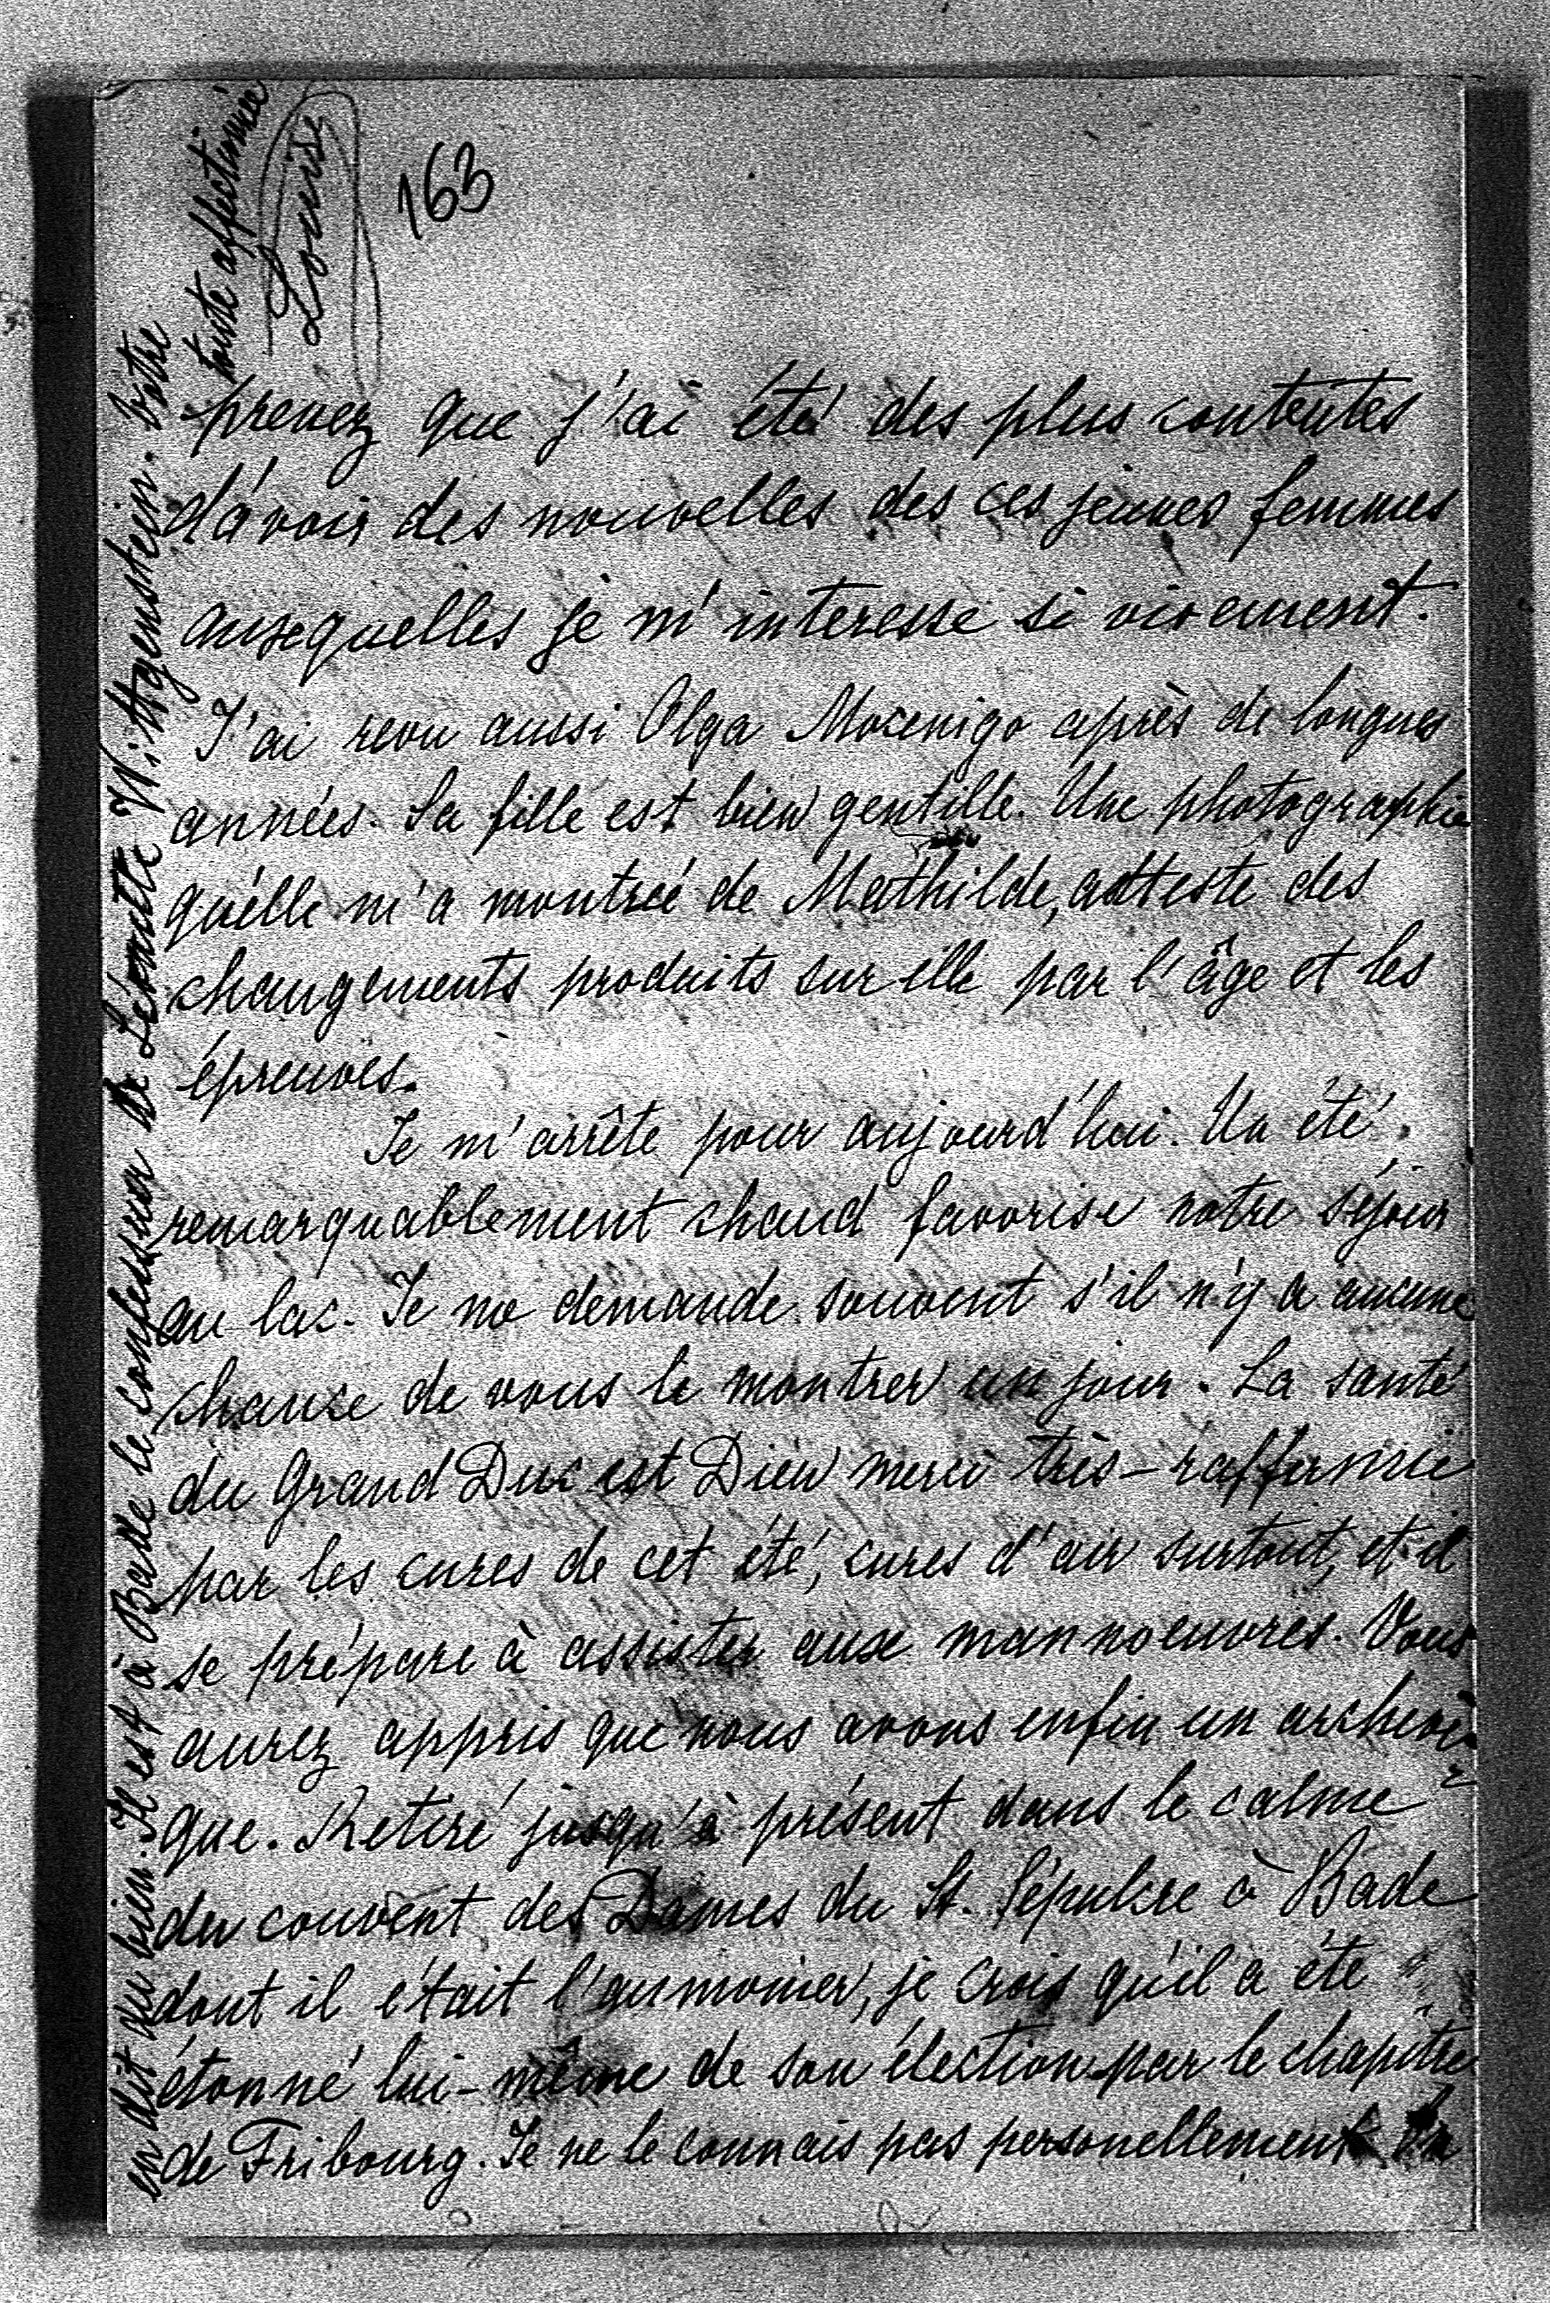 163
prenez que j'ai été des plus contentes
d'avoir des nouvelles des ces jeunes femmes
auxequelles je m'interesse si vivement.
J'ai revu aussi Olga Mocenigo après de longues
années. Sa fille est bien gentille. Une photographie
qu'elle m'a montrée de Mathilde, atteste des
changements produits sur elle par l'âge et les
épreuves.
Je m'arrête pour aujourd'hui. Un été
remarquablement chaud favorise notre séjour
au lac. Je me demande souvent s'il n'y a aucune
chance de vous le montrer un jour. La santé
du Grand Duc est Dieu merci très-raffermie
par les cures de cet été, cures d'air surtout, et il
se prépare à assister aux mannoeuvres. Vous
aurez appris que nous avons enfin un archevê-
que. Retiré jusqu'à présent dans le calme
du couvent des Dames du St. Sépulcre à Bade
dont il était l'aumonier, je crois qu'il a été
étonné lui-même de son élection par le chapitre
de Fribourg. Je ne le connais pas personellement. On
en dit du bien. Il est à Bade le confesseur de Léonille Wittgenstein. Votre
toute affectionnée
Louise